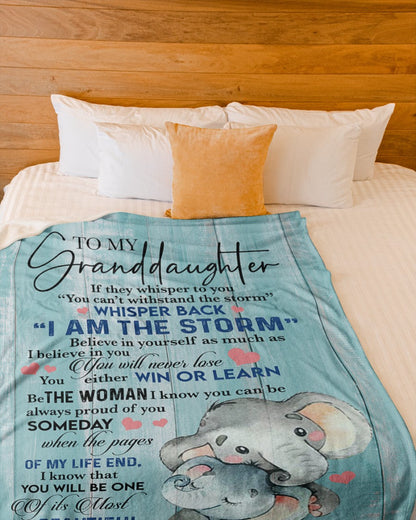 TO MY
Granddaughter
If they whisper to you
"You can't withstand the storm"
WHISPER BACK
"I AM THE STORM"
Believe in yourself as much as
I believe in you
You will never lose
You either WIN OR LEARN
Be THE WOMAN I know you can be
always proud of you
SOMEDAY
when the pages
OF MY LIFE END.
I know that
YOU WILL BE ONE
Of its Most
BEAUTIFUL